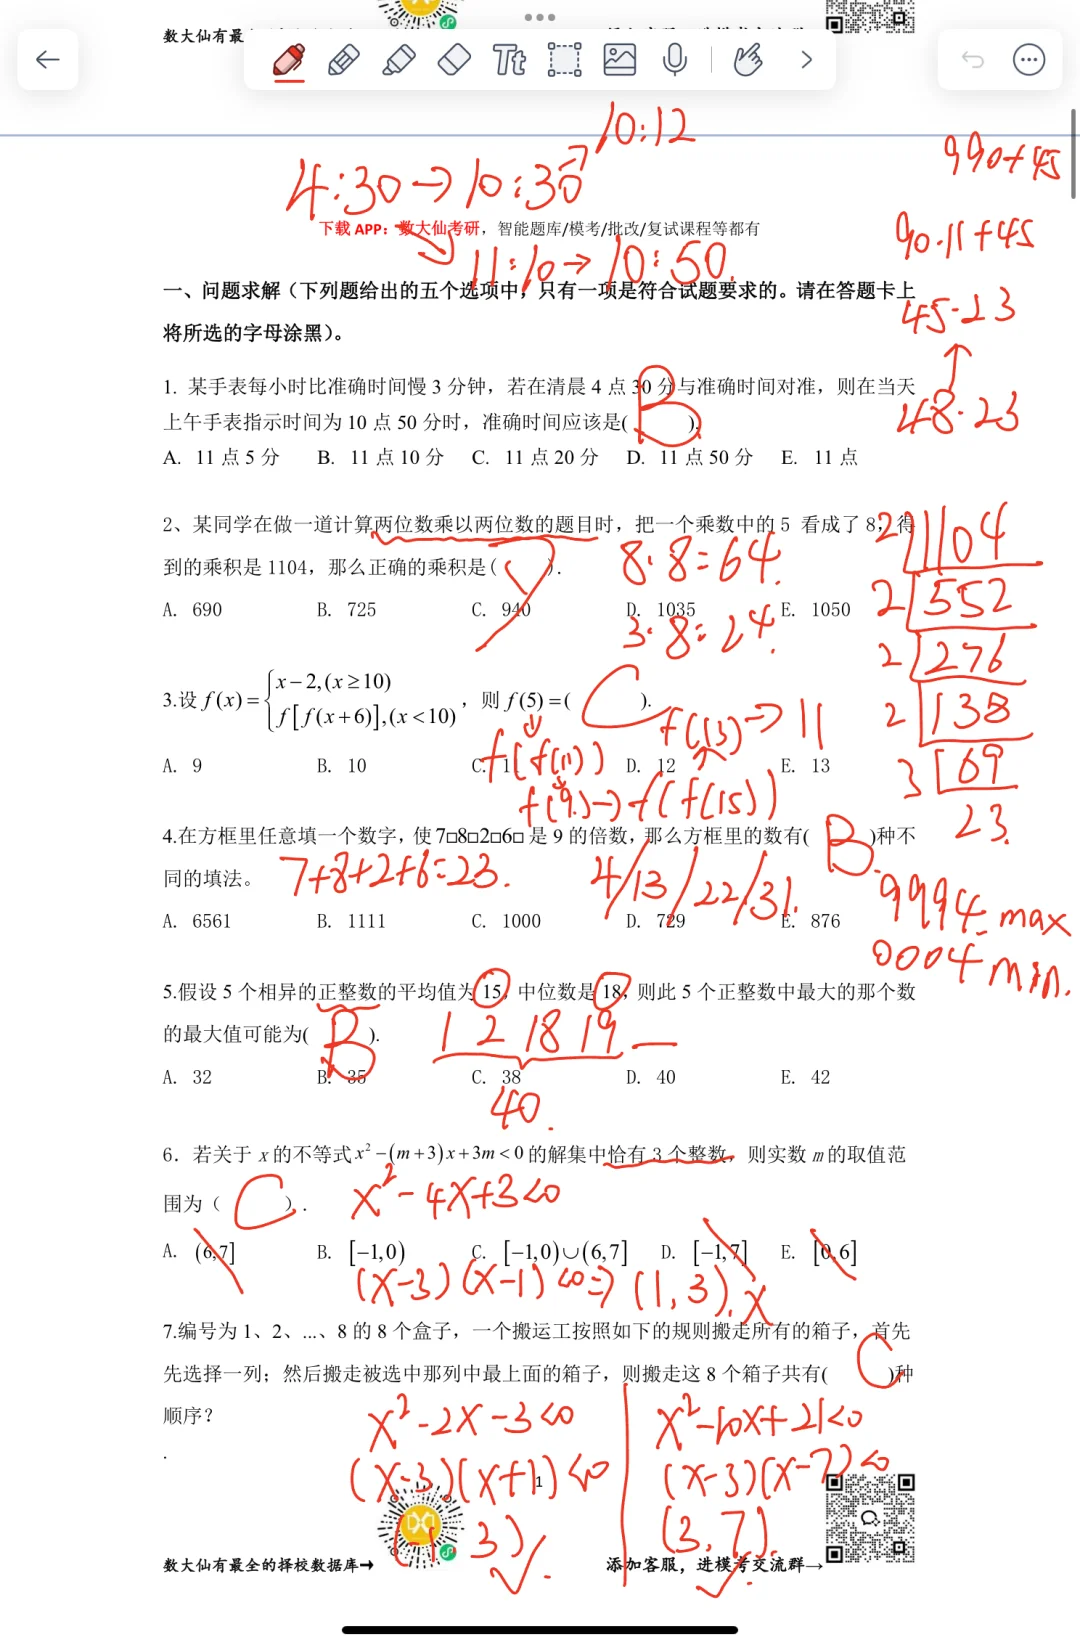 数大仙有最
Tt
10:12
4:30→10:30
990+45
下载 APP：数大仙考研，智能题库/模考/批改/复试课程等都有
90·11+45
11:10→10:50.
一、问题求解（下列题给出的五个选项中，只有一项是符合试题要求的。请在答题卡上
将所选的字母涂黑）。
45·23
1. 某手表每小时比准确时间慢 3 分钟，若在清晨 4 点 30 分与准确时间对准，则在当天
上午手表指示时间为 10 点 50 分时，准确时间应该是( B ).
48·23
A. 11 点 5 分 B. 11 点 10 分 C. 11 点 20 分 D. 11 点 50 分 E. 11 点
2、某同学在做一道计算两位数乘以两位数的题目时，把一个乘数中的 5 看成了 8，得
2 1104
到的乘积是 1104，那么正确的乘积是( ).
8·8=64.
A. 690 B. 725 C. 940 D. 1035 E. 1050
2 552
3·8=24.
2 276
3.设 f(x)={x−2,(x≥10)
f[f(x+6)],(x<10)
，则 f(5)=( C ).
f(13)→11
2 138
A. 9 B. 10 C. 11 D. 12 E. 13
f(f(11))
3 69
f(9)→f(f(15))
23.
4.在方框里任意填一个数字，使7□8□2□6□是 9 的倍数，那么方框里的数有( B )种不
同的填法。
7+8+2+6=23.
4/13/22/31.
A. 6561 B. 1111 C. 1000 D. 729 E. 876
9994 max
0004 min.
5.假设 5 个相异的正整数的平均值为 15，中位数是 18，则此 5 个正整数中最大的那个数
的最大值可能为( B ).
1 2 18 19
A. 32 B. 35 C. 38 D. 40 E. 42
40.
6．若关于 x 的不等式 x²−(m+3)x+3m<0 的解集中恰有 3 个整数，则实数 m 的取值范
围为（ C ）.
x²-4x+3<0
A. (6,7] B. [−1,0) C. [−1,0)∪(6,7] D. [−1,7] E. [0,6]
(x-3)(x-1)<0⇒(1,3).x
7.编号为 1、2、...、8 的 8 个盒子，一个搬运工按照如下的规则搬走所有的箱子，首先
先选择一列；然后搬走被选中那列中最上面的箱子，则搬走这 8 个箱子共有( C )种
顺序?
x²-2x-3<0
x²-10x+21<0
.
(x-3)(x+1)<0
(x-3)(x-7)<0
1
(-1,3)
(3,7).
数大仙有最全的择校数据库→
添加客服，进模考交流群→